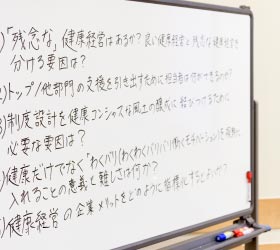 )「残念な」健康経営はあるか？良い健康経営と残念な健康経営を
分ける要因は？
)トップ/他部門の支援を引き出すために担当者は何ができるか？
)制度設計を健康コンシャスな風土の醸成に結びつけるために
必要な要因は？
)健康だけでなく「わくバリ(わくわくバリバリ)働くモチベーション」を
入れることの意義と難しさは何か？
)健康経営の企業メリットをどのように指標化するとよいか？